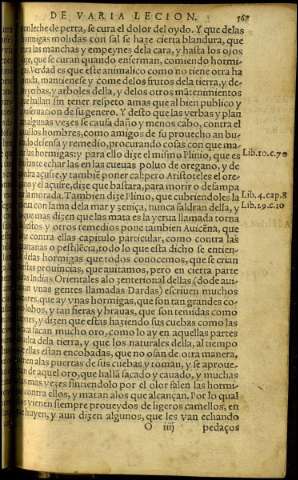 DE VARIA LECION. 367
leche de perra, se cura el dolor del oydo. Y que delas
migas molidas con sal se haze cierta blandura, que
tra las manchas y empeynes dela cara, y hasta los ojos
que se curan quando enferman, comiendo hormi-
Verdad es que este animalico como no tiene otra ha
nda, mantienese y come delos frutos dela tierra, y de
yerbas, y arboles della, y delos otros mãtenimientos
hallan sin tener respeto a mas que al bien publico y
de su genero. Y desto que las yerbas y plan
algunas vezes se causa daño y menos cabo, contra el
los hombres, como amigos de su prouecho an bu-
defensa y remedio, procurando cosas con que ma-
hormigas: y para ello dize el mismo Plinio, que es
Lib. 10. c. 70
echar las en las cueuas poluo de oregano, y de
açufre, y tambiẽ poner cal: pero Aristoteles el ore-
y el açufre, dize que bastara, para morir o desampa
morada. Tambien dize Plinio, que cubriendoles la
Lib. 4. cap. 8
con lama dela mar y ceniça, nunca saldran dessa, y
Lib. 19. c. 10
mas dizen que las mata es la yerua llamada torna
y otros remedios pone tambien Auicena, que
contra ellas capitulo particular, como contra las
o pestilẽcia, todo lo que esta dicho se entien-
delas hormigas que todos conocemos, que se crian
prouincias, que auitamos, pero en cierta parte
Indias Orientales alo setentrional dellas (dode aui-
vnas gentes llamadas Dardas) escriuen muchos
que ay vnas hormigas, que son tan grandes co-
lobos, y tan fieras y brauas, que son tenidas como
y dizen que estas haziendo sus cuebas como las
sacan mucho oro, como lo ay en aquellas partes
dela tierra, y que los naturales della, al tiempo
ellas estan encobadas, que no osan de otra manera,
alas puertas de sus cuebas y toman, y se aproue-
de aquel oro, que hallã sacado y cauado, y muchas
mas vezes sintiendolo por el olor salen las hormi-
contra ellos, y matan alos que alcançan. Por lo qual
vienen siempre proueydos de ligeros camellos, en
huyen, y aun dizen algunos, que les van echando
O iiij pedaços